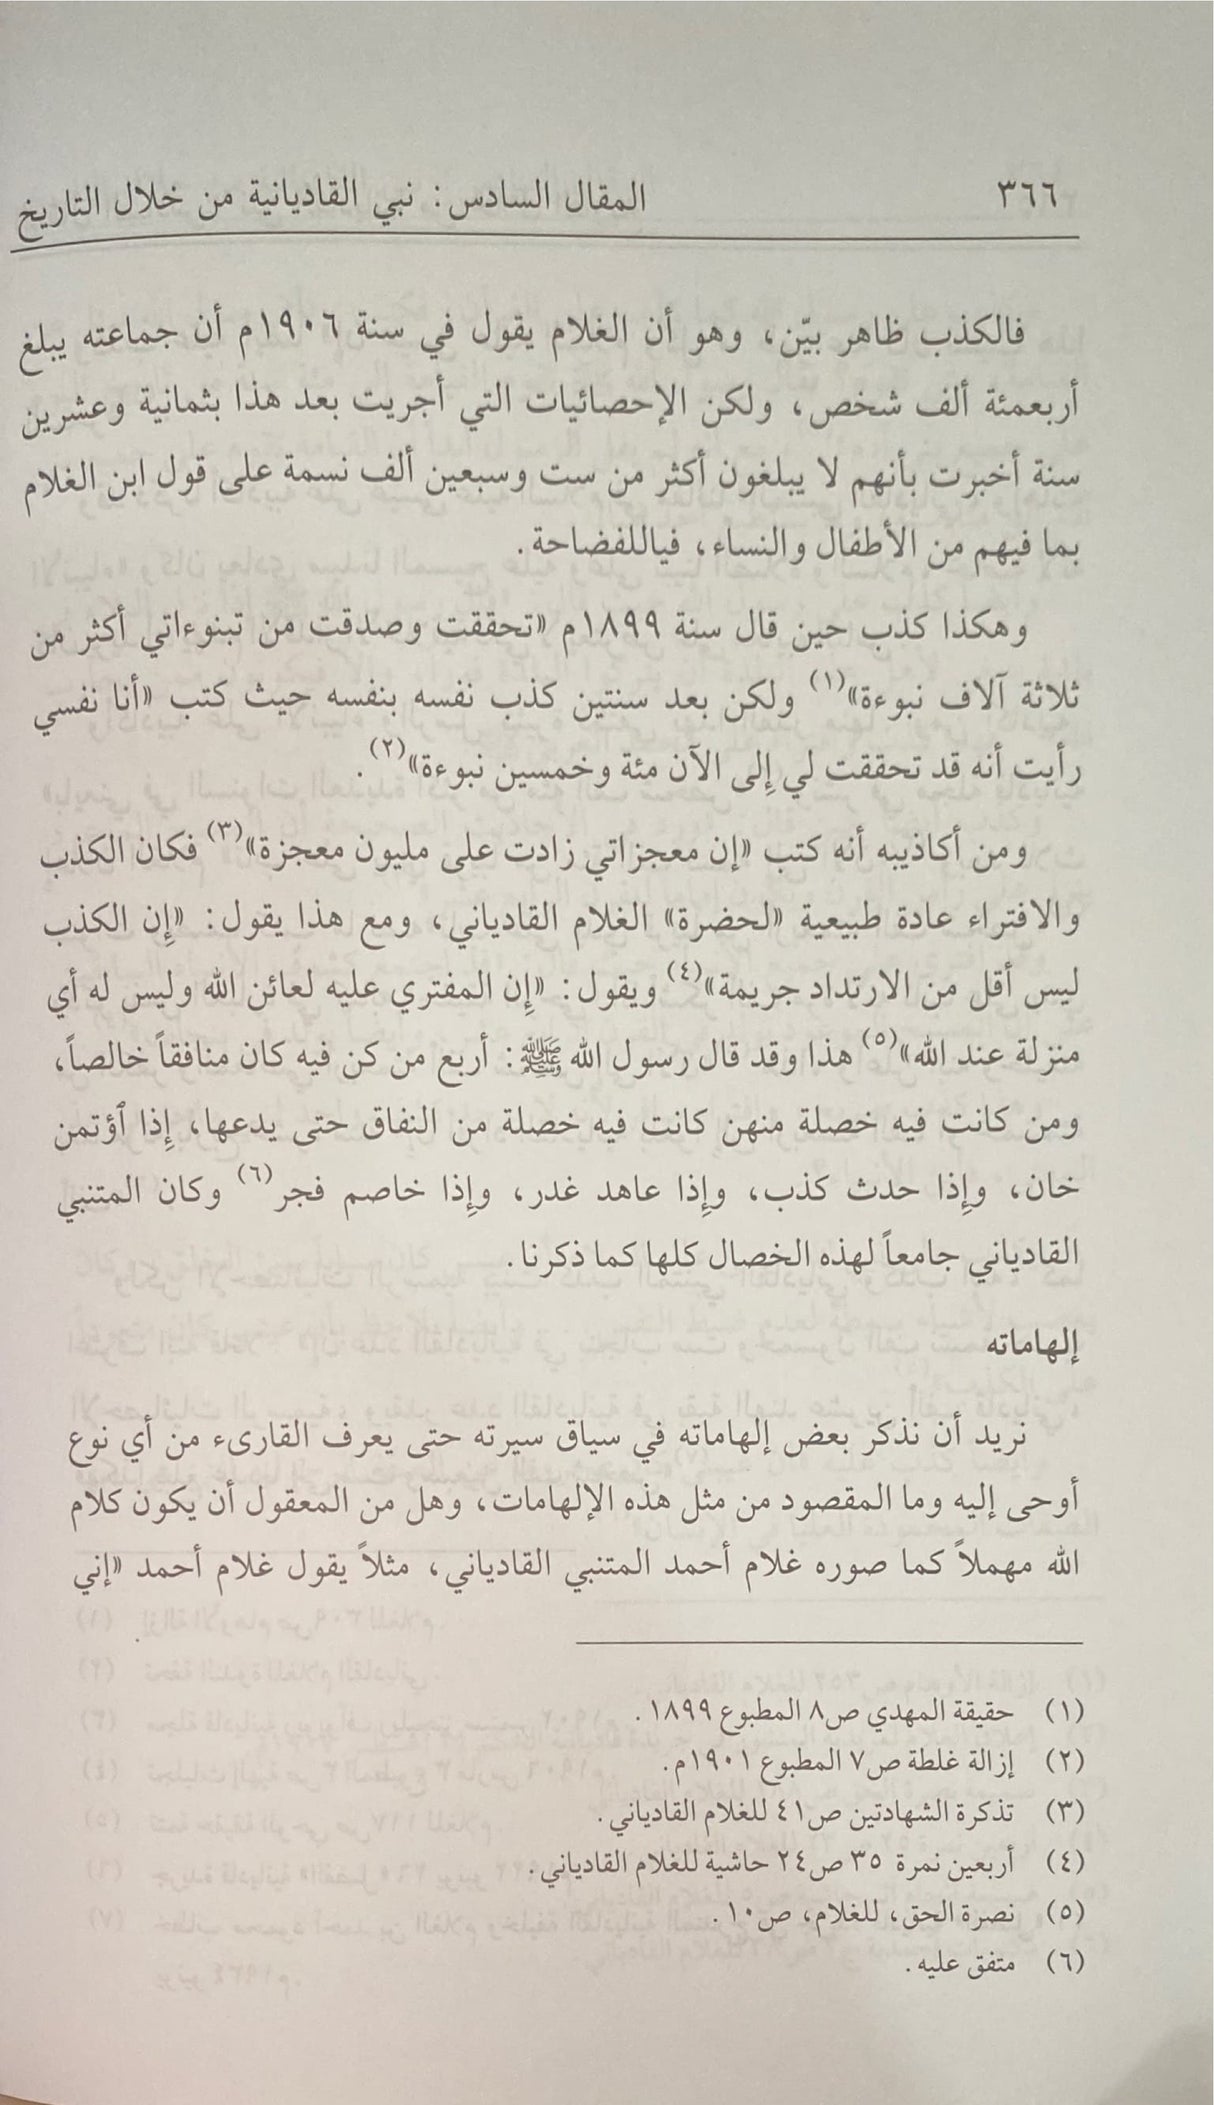 ٣٦٦
المقال السادس: نبي القاديانية من خلال التاريخ
فالكذب ظاهر بيّن، وهو أن الغلام يقول في سنة ١٩٠٦م أن جماعته يبلغ
أربعمئة ألف شخص، ولكن الإحصائيات التي أجريت بعد هذا بثمانية وعشرين
سنة أخبرت بأنهم لا يبلغون أكثر من ست وسبعين ألف نسمة على قول ابن الغلام
بما فيهم من الأطفال والنساء، فياللفضاحة.
وهكذا كذب حين قال سنة ١٨٩٩م «تحققت وصدقت من تبنوءاتي أكثر من
ثلاثة آلاف نبوءة»(١) ولكن بعد سنتين كذب نفسه بنفسه حيث كتب «أنا نفسي
رأيت أنه قد تحققت لي إِلى الآن مئة وخمسين نبوءة»(٢).
ومن أكاذيبه أنه كتب «إن معجزاتي زادت على مليون معجزة»(٣) فكان الكذب
والافتراء عادة طبيعية «لحضرة» الغلام القادياني، ومع هذا يقول: «إِن الكذب
ليس أقل من الارتداد جريمة»(٤) ويقول: «إِن المفتري عليه لعائن الله وليس له أي
منزلة عند الله»(٥) هذا وقد قال رسول الله ﷺ: أربع من كن فيه كان منافقاً خالصاً،
ومن كانت فيه خصلة منهن كانت فيه خصلة من النفاق حتى يدعها، إِذا ٱؤتمن
خان، وإِذا حدث كذب، وإِذا عاهد غدر، وإِذا خاصم فجر(٦) وكان المتنبي
القادياني جامعاً لهذه الخصال كلها كما ذكرنا.
إلهاماته
نريد أن نذكر بعض إلهاماته في سياق سيرته حتى يعرف القارىء من أي نوع
أوحى إليه وما المقصود من مثل هذه الإلهامات، وهل من المعقول أن يكون كلام
الله مهملاً كما صوره غلام أحمد المتنبي القادياني، مثلاً يقول غلام أحمد «إني
(١) حقيقة المهدي ص٨ المطبوع ١٨٩٩.
(٢) إزالة غلطة ص٧ المطبوع ١٩٠١م.
(٣) تذكرة الشهادتين ص٤١ للغلام القادياني.
(٤) أربعين نمرة ٣٥ ص٢٤ حاشية للغلام القادياني.
(٥) نصرة الحق، للغلام، ص١٠.
(٦) متفق عليه.